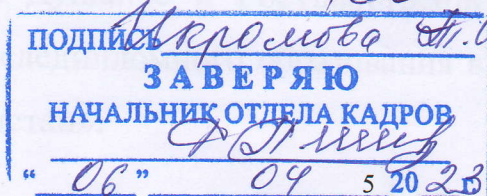 ПОДПИСЬ Икромова Т.И
ЗАВЕРЯЮ
НАЧАЛЬНИК ОТДЕЛА КАДРОВ
“ 06 ” 04 5 20 23 г.